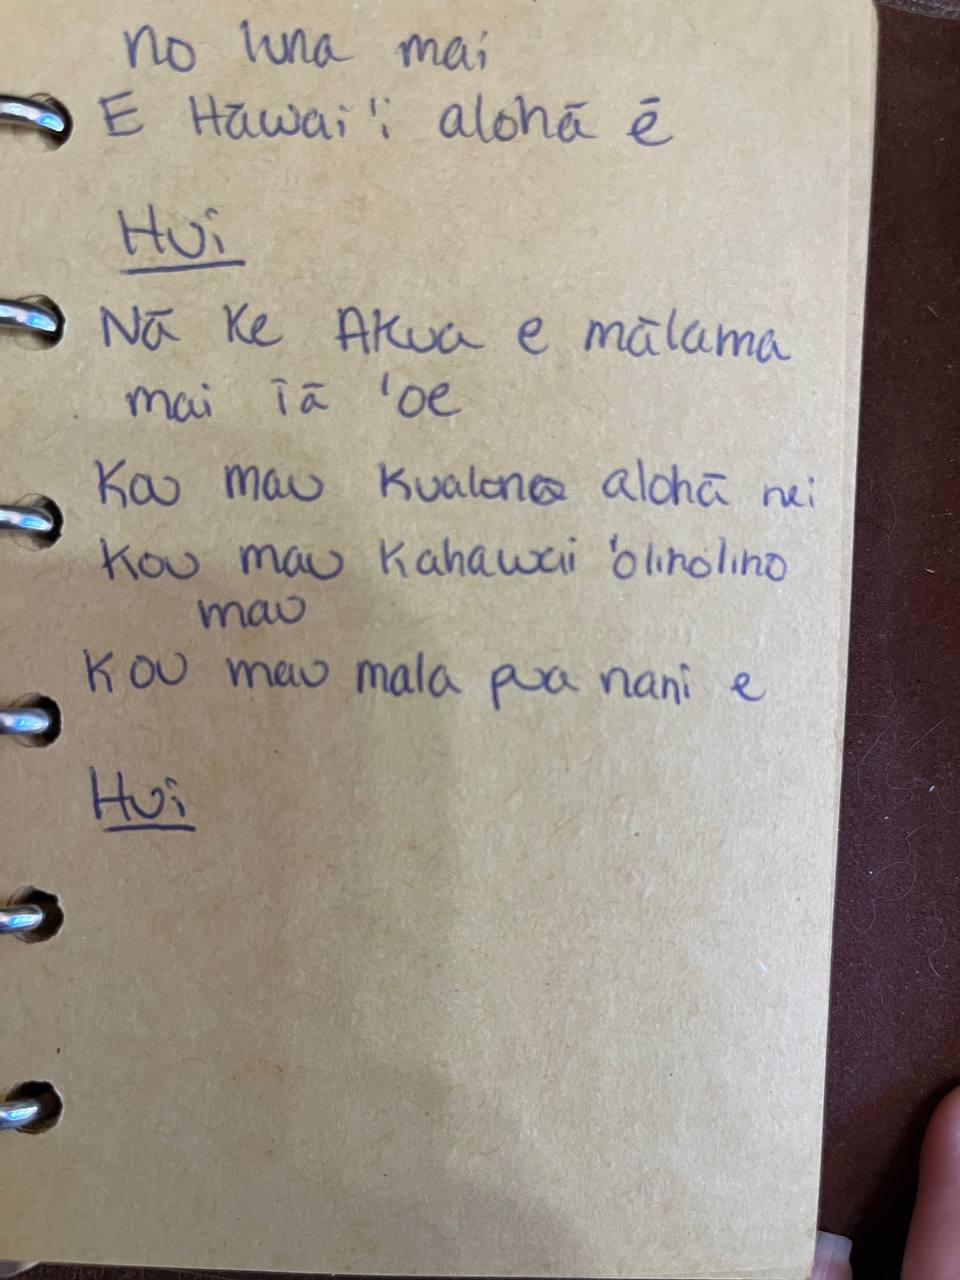 no luna mai
E Hāwai'i alohā ē
Hui
Nā Ke Akua e mālama
mai īā 'oe
Kou mau Kualono alohā nei
Kou mau Kahawai 'ōlinolino
mau
Kou mau mala pua nani e
Hui